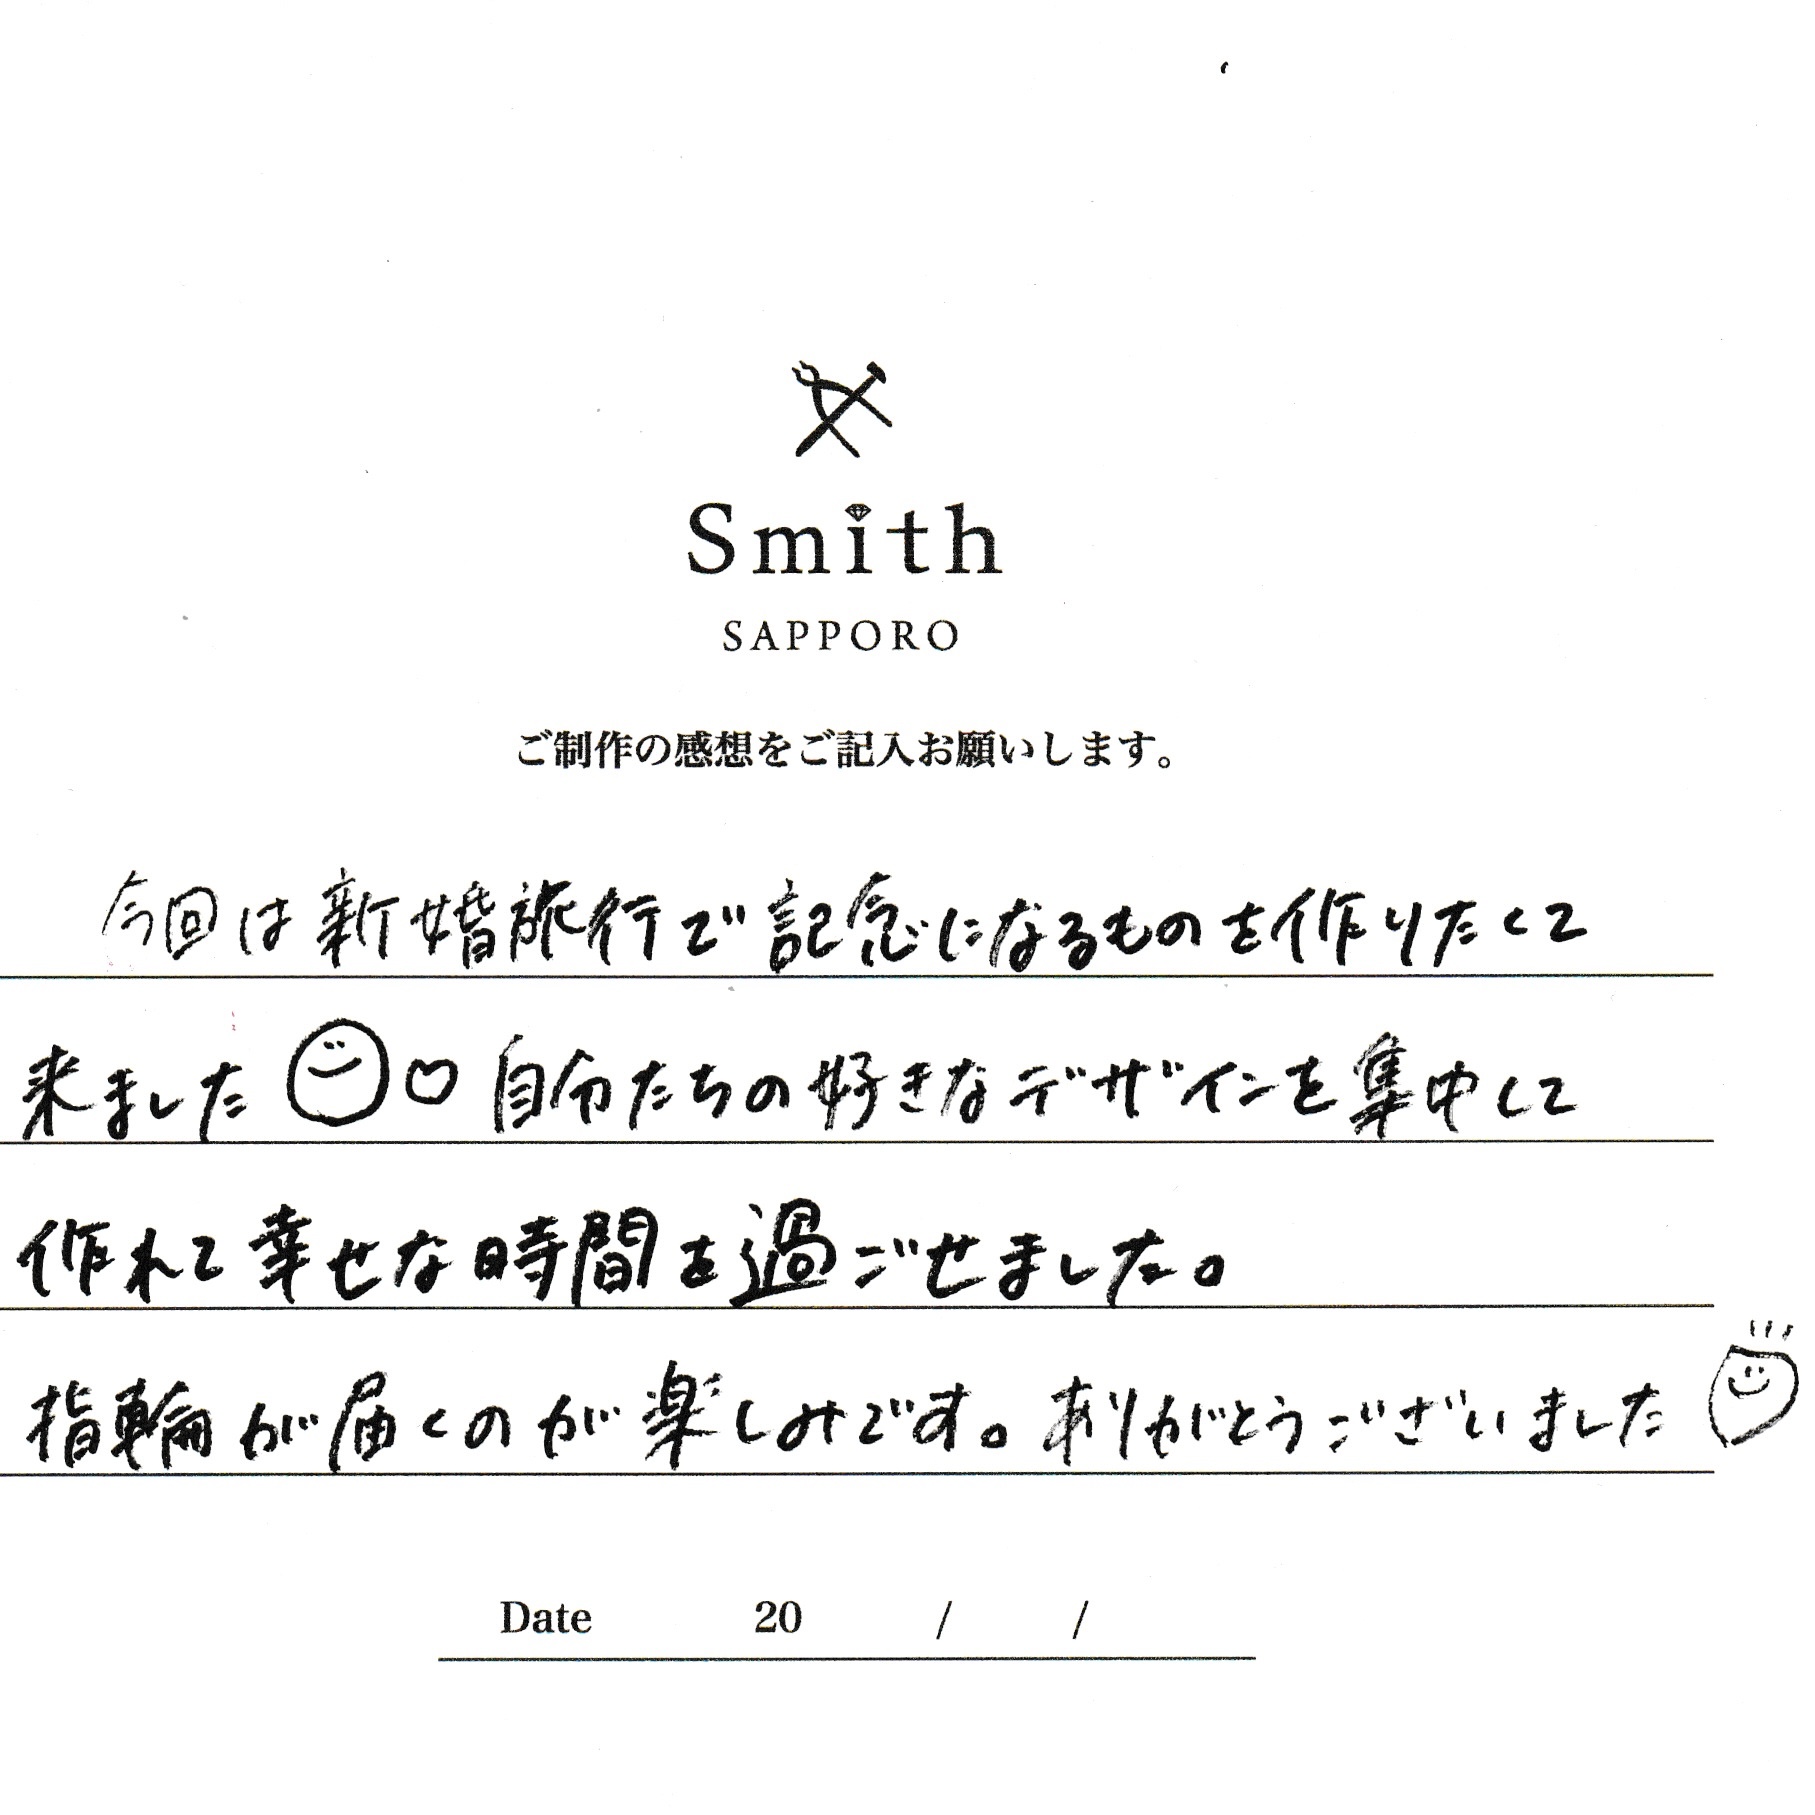 Smith
SAPPORO
ご制作の感想をご記入お願いします。
今回は新婚旅行で記念になるものを作りたくて
来ました 自分たちの好きなデザインを集中して
作れて幸せな時間を過ごせました。
指輪が届くのが楽しみです。ありがとうございました
Date 20 / /